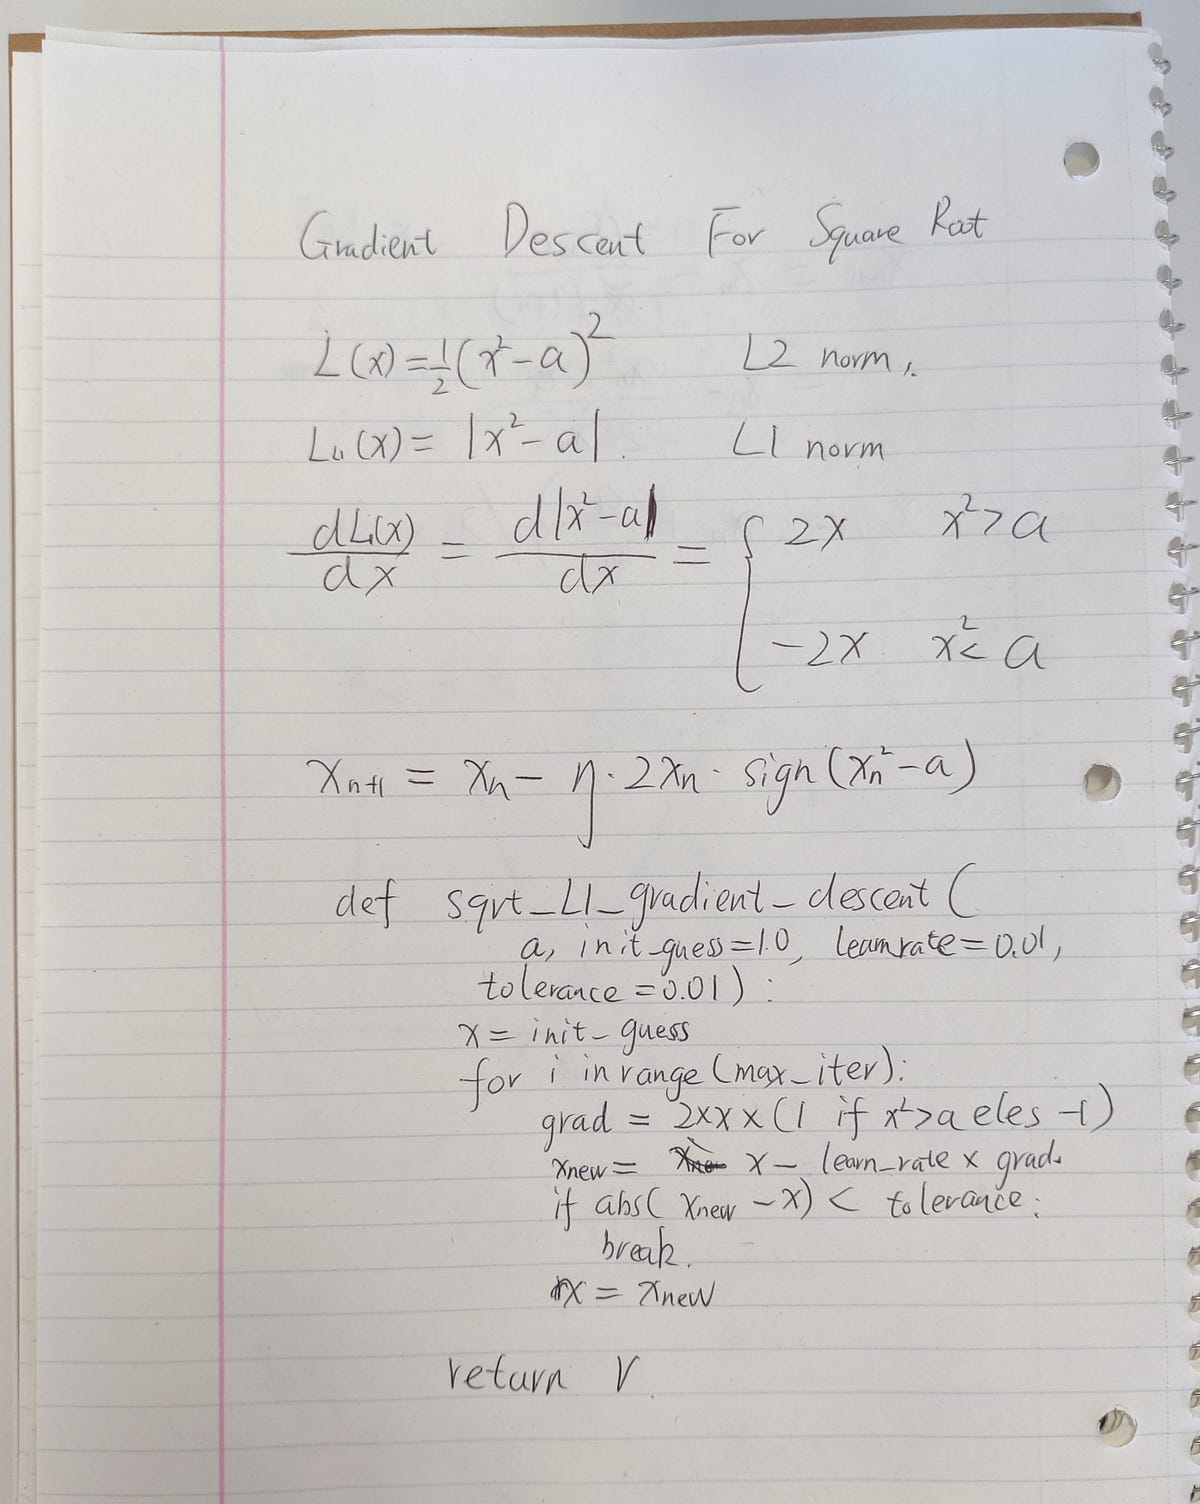 Gradient Descent For Square Root
L(x) = 1/2 (x² - a)² L2 norm,
L₁₁(x) = |x² - a|. L1 norm
dL₁(x)/dx = d|x² - a|/dx = { 2x x² > a
-2x x² < a
xₙ₊₁ = xₙ - η · 2xₙ · sign(xₙ² - a)
def sqrt_L1_gradient_descent (
a, init_guess = 1.0, learnrate = 0.01,
tolerance = 0.01) :
x = init_guess
for i in range (max_iter):
grad = 2 x x x (1 if x² > a eles -1)
xnew = x - learn_rate x grad.
if abs( xnew - x) < tolerance:
break.
x = xnew
return r.